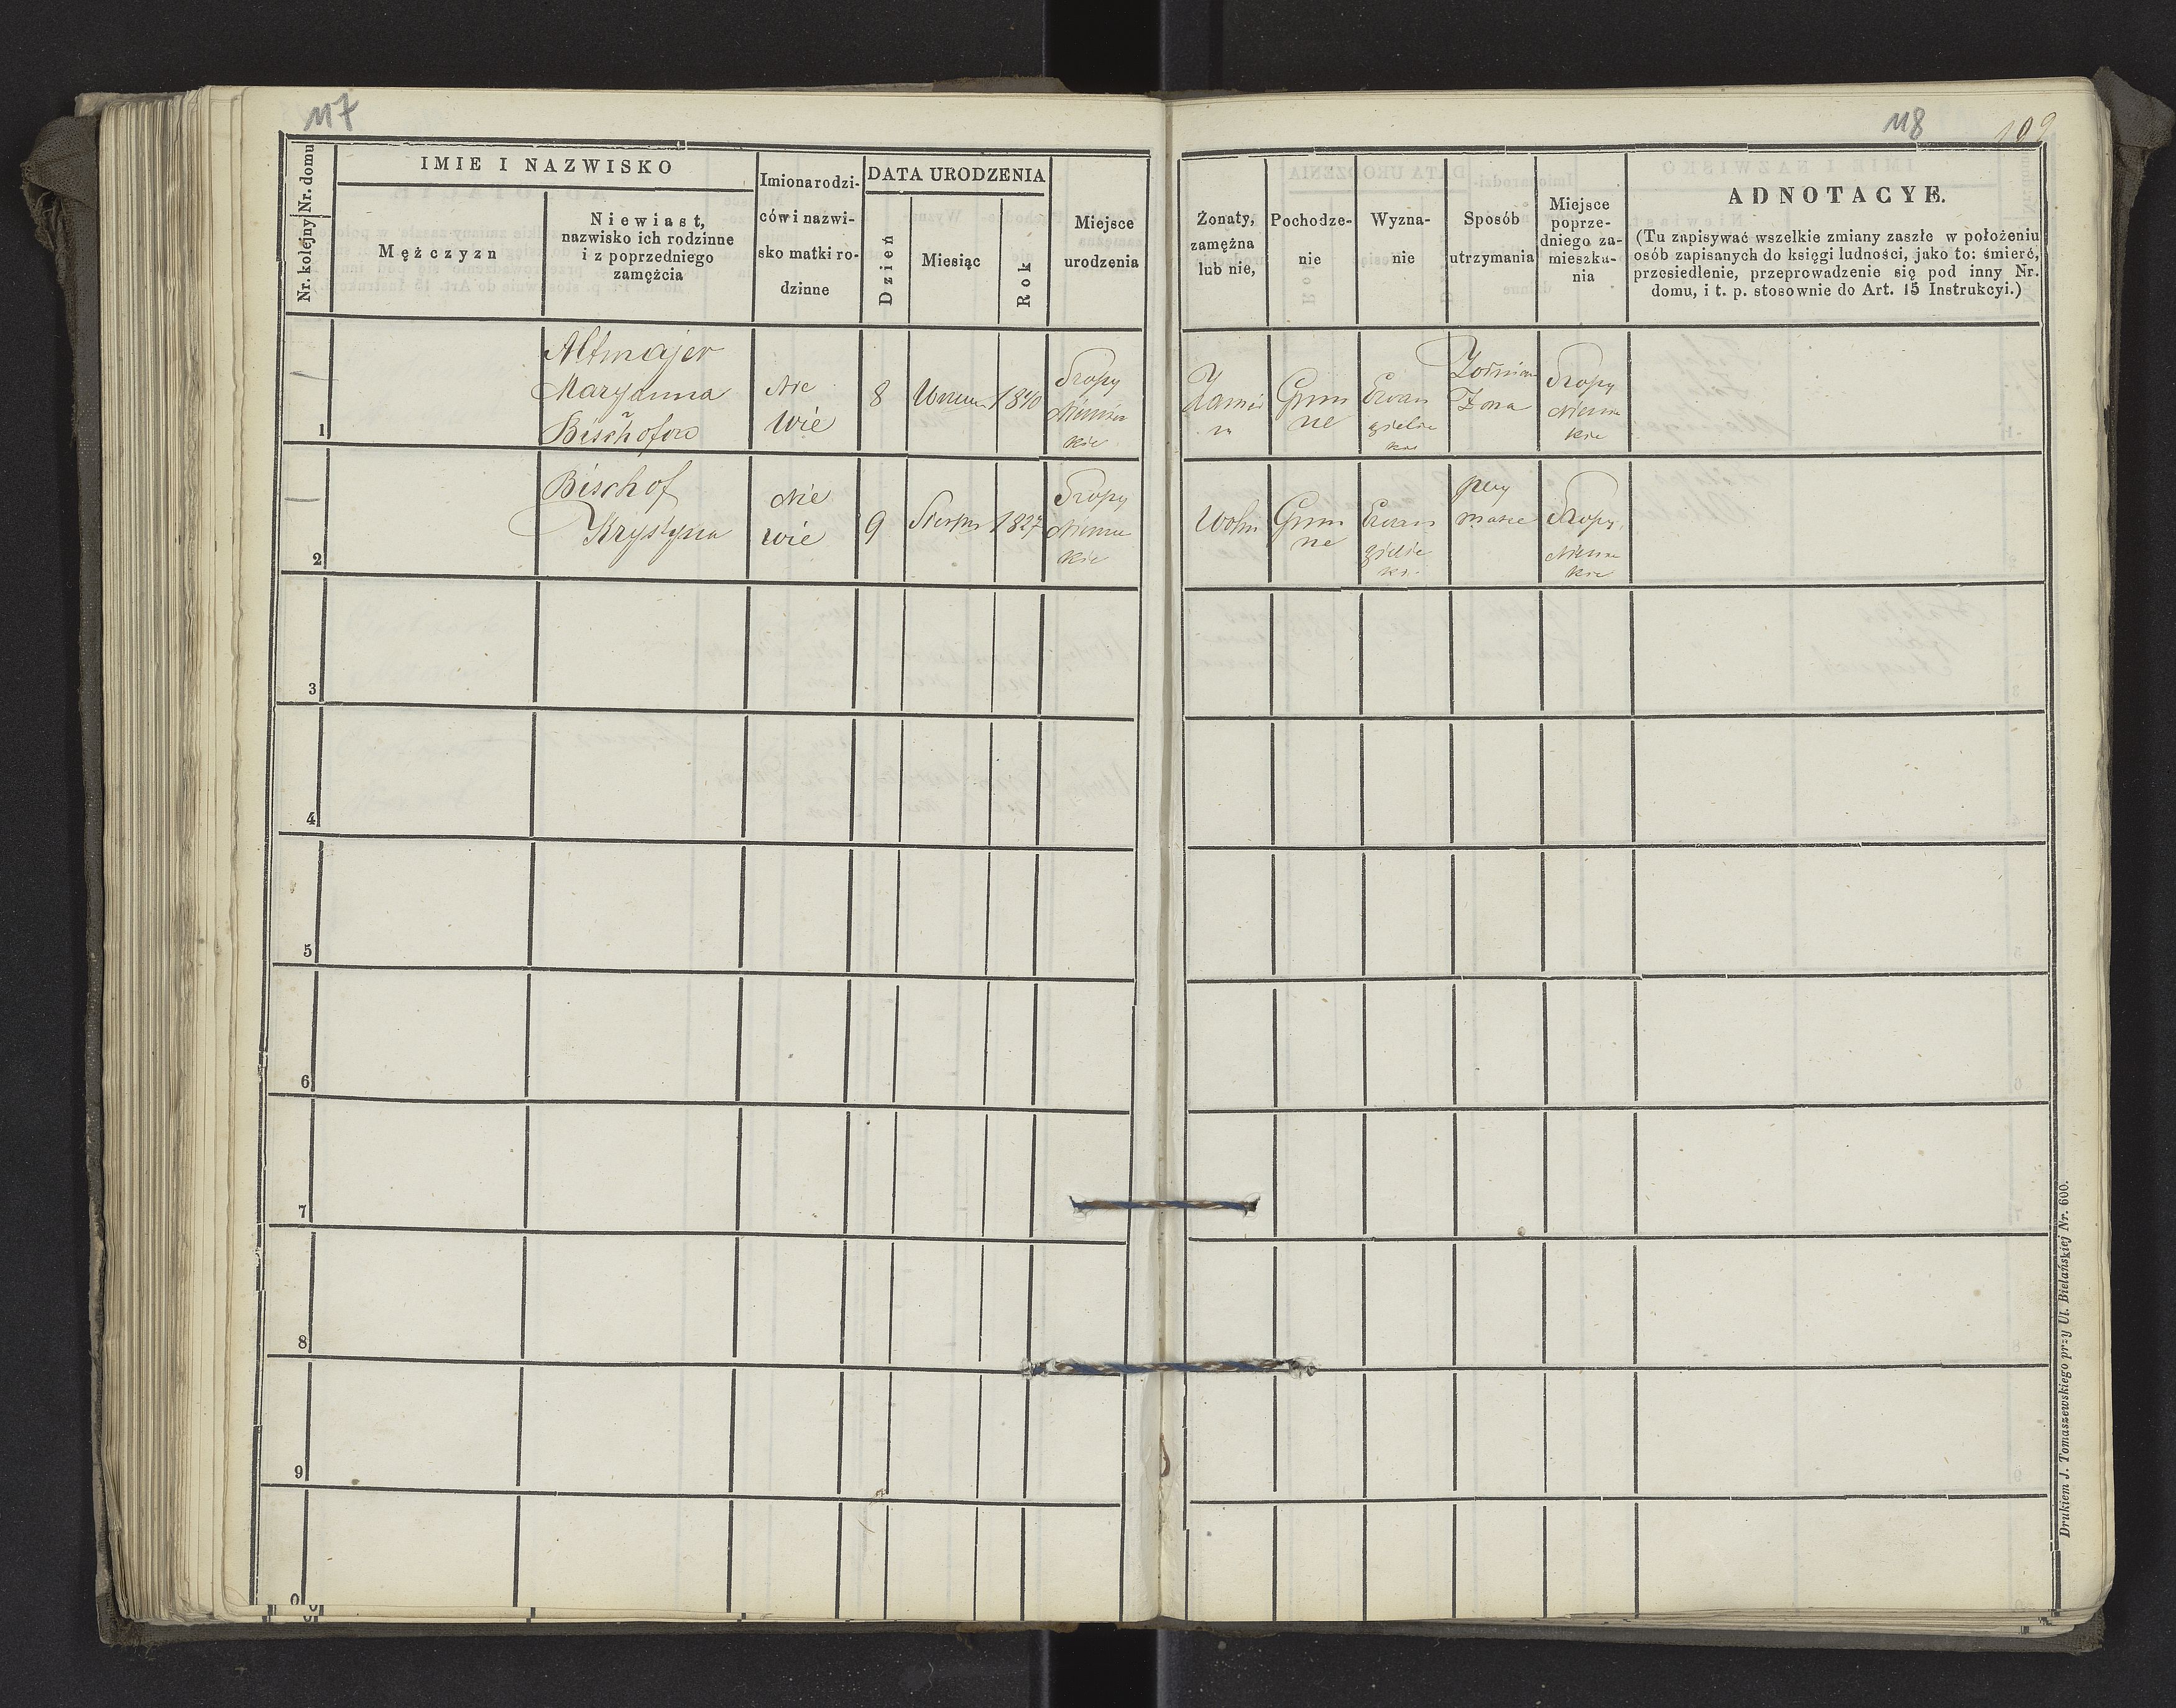 117
118
109
Nr. kolejny
Nr. domu
IMIE I NAZWISKO
Mężczyzn
Niewiast,
nazwisko ich rodzinne
i z poprzedniego
zamęźcia
Imiona rodzi-
ców i nazwi-
sko matki ro-
dzinne
DATA URODZENIA
Dzień
Miesiąc
Rok
Miejsce
urodzenia
Żonaty,
zamężna
lub nie,
Pochodze-
nie
Wyzna-
nie
Sposób
utrzymania
Miejsce
poprze-
dniego za-
mieszka-
nia
ADNOTACYE.
(Tu zapisywać wszelkie zmiany zaszłe w położeniu
osób zapisanych do księgi ludności, jako to: śmierć,
przesiedlenie, przeprowadzenie się pod inny Nr.
domu, i t. p. stosownie do Art. 15 Instrukcyi.)
1
Altmajer
Maryanna
Bischofow
Nie
wie
8
1840
Gmin
ne
Ewan
gielic
ka
Żona
2
Bischof
Krystyna
Nie
wie
9
Sierpn
1827
Wolna
Gmin
ne
Ewan
gielic
ka
przy
matce
3
4
5
6
7
8
9
Drukiem J. Tomaszewskiego przy Ul. Bielańskiej Nr. 600.